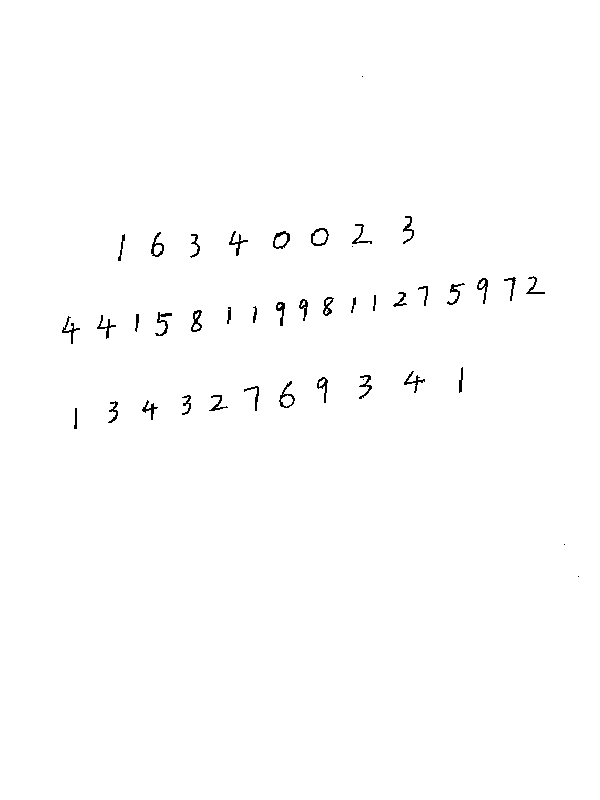 1 6 3 4 0 0 2 3
4 4 1 5 8 1 1 9 9 8 1 1 2 7 5 9 7 2
1 3 4 3 2 7 6 9 3 4 1